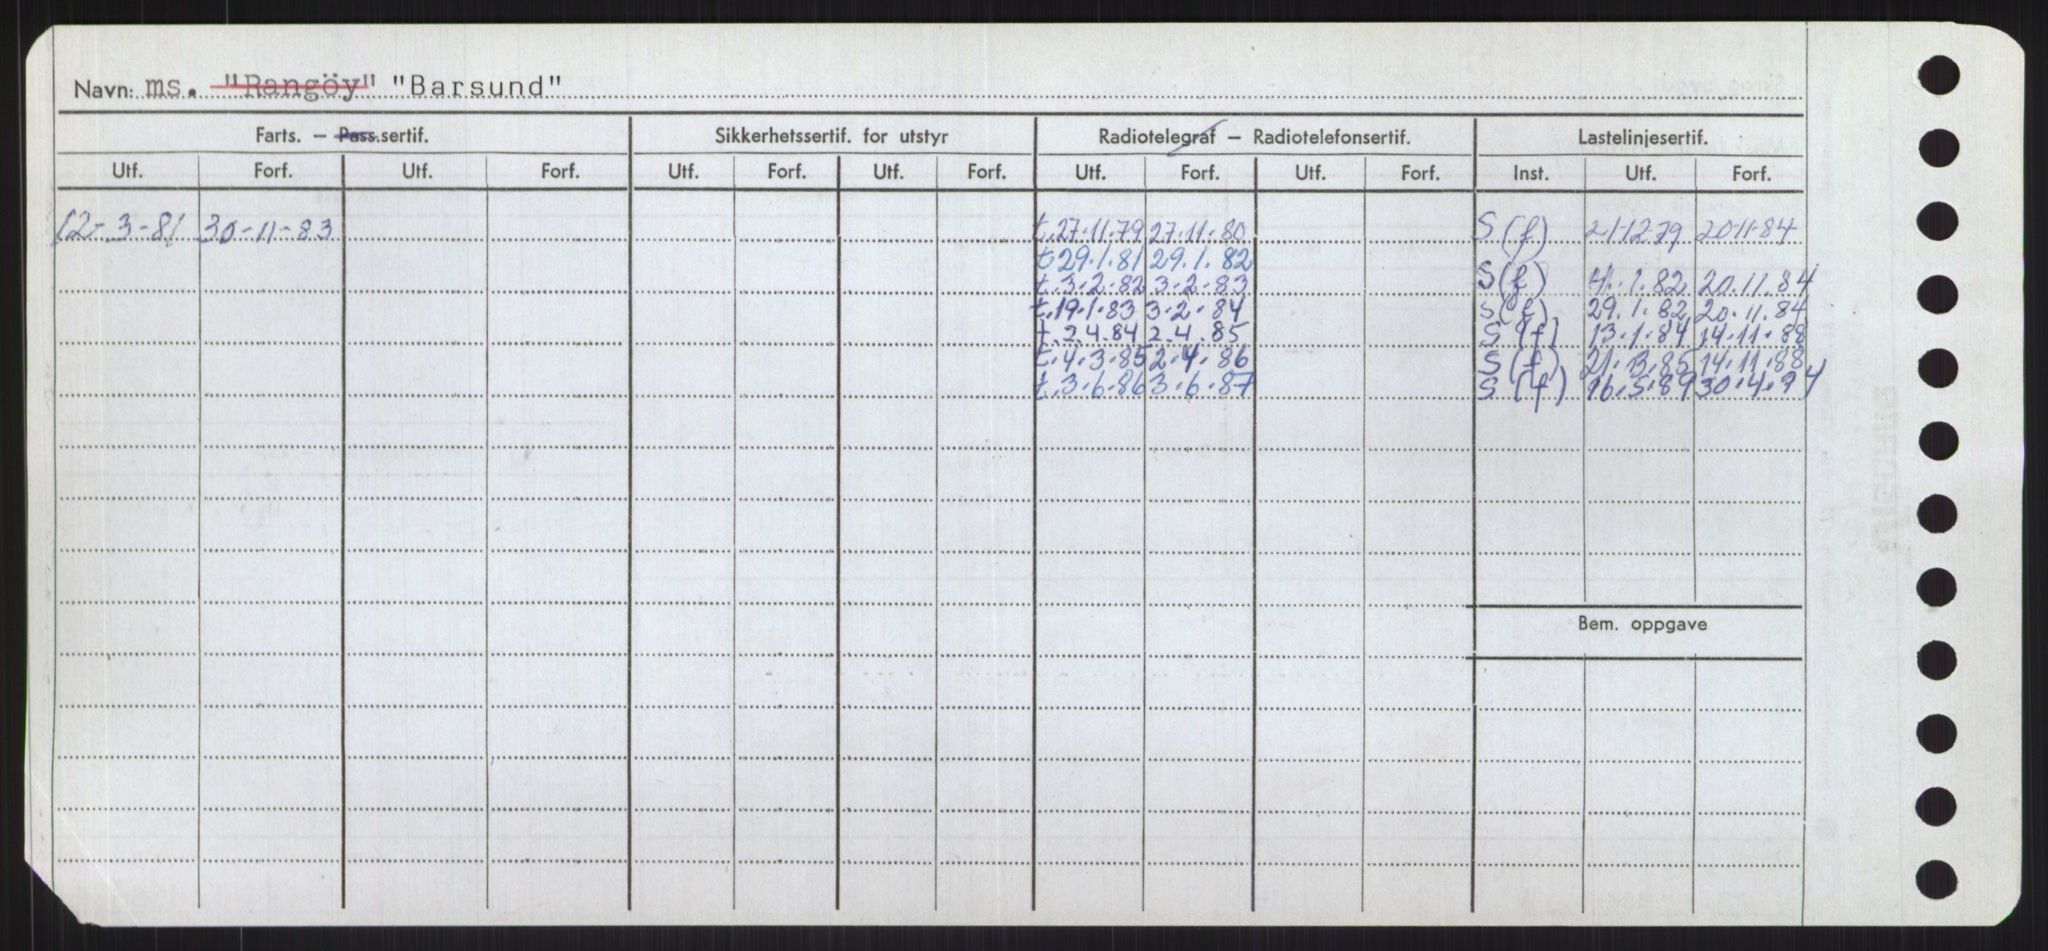 Navn: ms. "Rangöy" "Barsund"
Farts. — Pass.sertif. Sikkerhetssertif. for utstyr Radiotelegraf — Radiotelefonsertif. Lastelinjesertif.
Utf. Forf. Utf. Forf. Utf. Forf. Utf. Forf. Utf. Forf. Utf. Forf. Inst. Utf. Forf.
12-3-81 30-11-83 t.27.11.79 27.11.80 S(f) 21.12.79 20.11.84
t 29.1.81 29.1.82
t.3.2.82 3.2.83 S(f) 4.1.82 20.11.84
t.19.1.83 3.2.84 S(f) 29.1.82 20.11.84
t.2.4.84 2.4.85 S(f) 13.1.84 14.11.88
t.4.3.85 2.4.86 S(f) 14.11.88
t.3.6.86 3.6.87 S(f) 16.5.89 30.4.94
Bem. oppgave